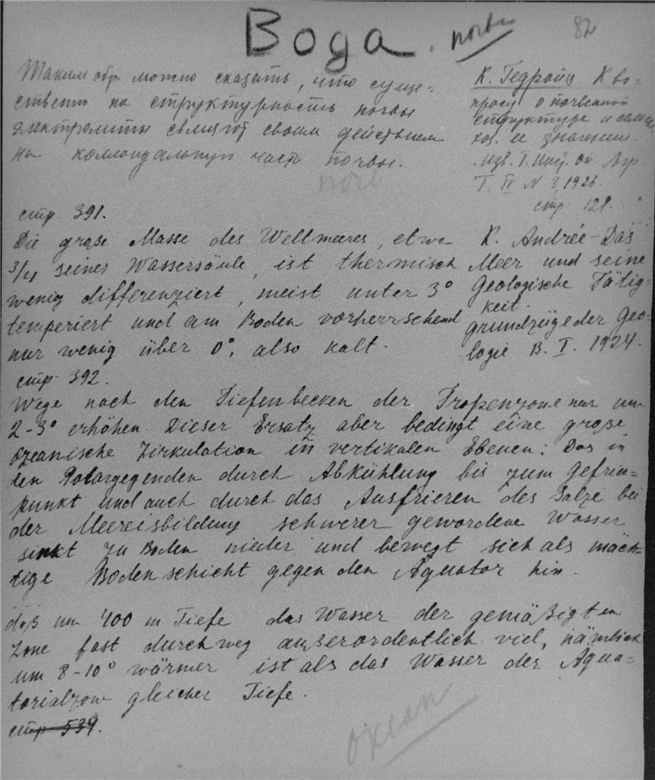 Вода. почв
82
Таким обр. можно сказать, что суще-
ственно на структурность почвы
электролиты своим действием
на коллоидальную часть почвы.
почв
К. Гедройц К во-
просу о почвенной
структуре и
ее значении.
Изв. Г. Инст. оп. Агр
Т. IV N 3, 1926
стр. 121.
стр. 391.
Die große Masse des Weltmeeres, etwa
3/4 seines Wassersäule, ist thermisch
wenig differenziert, meist unter 3°
temperiert und am Boden vorherrschend
nur wenig über 0°, also kalt.
K. Andrée-Das
Meer und seine
Geologische Tätig-
keit.
grundzüge der Geo-
logie B. I. 1924.
стр. 392.
Wege nach den Tiefenbecken der Tropenzone nur um
2-3° erhöhen. Dieser Ersatz aber bedingt eine große
Ozeanische Zirkulation in vertikalen Ebenen: Das in
den Polargegenden durch Abkühlung bis zum Gefrier-
punkt und auch durch das Ausfrieren des Salze bei
der Meereisbildung schwerer gewordene Wasser
sinkt zu Boden nieder und bewegt sich als mäch-
tige Bodenschicht gegen den Äquator hin.
daß um 400 m Tiefe das Wasser der gemäßigten
Zone fast durchweg außerordentlich viel, nämlich
um 8-10° wärmer ist als das Wasser der Äqua-
torialzone gleicher Tiefe.
стр 539.
океан